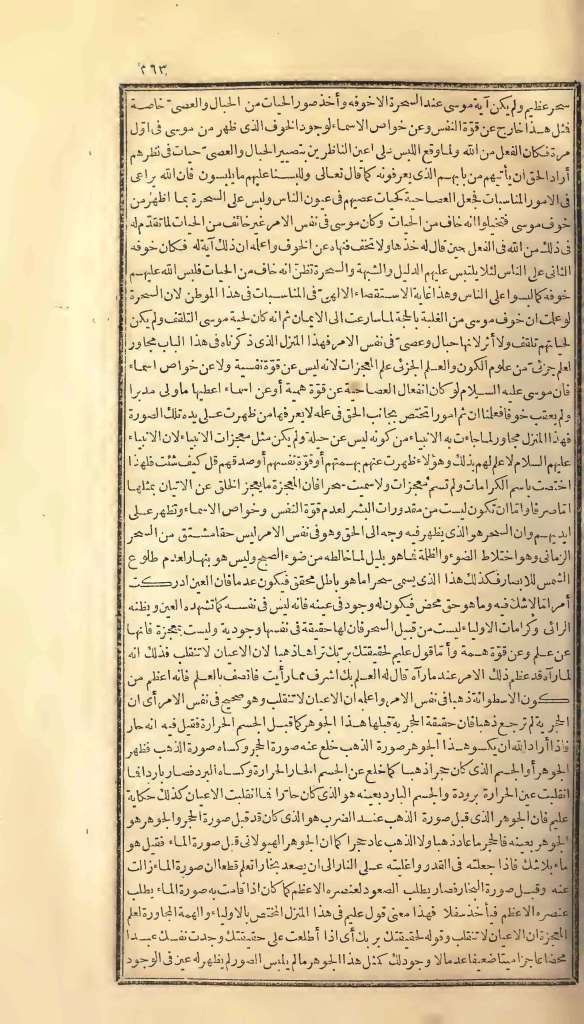 ٢٦٣
سحر عظيم ولم يكن آية موسى عند السحرة الاخوفه وأخذ صور الحيات من الحبال والعصىّ خاصة
فمثل هذا خارج عن قوّة النفس وعن خواص الاسماء لوجود الخوف الذى ظهر من موسى فى اوّل
مرة فكان الفعل من الله ولما وقع اللبس على اعين الناظرين بتصيير الحبال والعصىّ حيات فى نظرهم
أراد الحق ان يأتيهم من بابهم الذى يعرفونه كما قال تعالى وللبسنا عليهم ما يلبسون فان الله يراعى
فى الامور المناسبات فجعل العصا حية كحيات عصيهم فى عيون الناس ولبس على السحرة بما اظهر من
خوف موسى فتخيلوا انه خاف من الحيات وكان موسى فى نفس الامر غير خائف من الحيات لما تقدّم له
فى ذلك من الله فى الفعل حين قال له خذها ولا تخف فنهاه عن الخوف واعلمه ان ذلك آية له فكان خوفه
الثانى على الناس لئلا يلتبس عليهم الدليل والشبهة والسحرة تظنّ انه خاف من الحيات فلبس الله عليهم
خوفه كما لبسوا على الناس وهذا غاية الاستقصاء الالهىّ فى المناسبات فى هذا الموطن لان السحرة
لو علمت ان خوف موسى من الغلبة بالحجة لما سارعت الى الايمان ثم انه كان لحية موسى التلقف ولم يكن
لحياتهم تلقف ولا أثر لانها حبال وعصىّ فى نفس الامر فهذا المنزل الذى ذكرناه فى هذا الباب مجاور
لعلم جزئىّ من علوم الكون والعلم الجزئى علم المعجزات لانه ليس عن قوّة نفسية ولا عن خواص اسماء
فان موسى عليه السلام لو كان انفعال العصا حية عن قوّة همية أوعن اسماء اعطيها ما ولى مدبرا
ولم يعقب خوفا فعلمنا ان ثم امورا تختص بجانب الحق فى علمه لا يعرفها من ظهرت على يده تلك الصورة
فهذا المنزل مجاور لما جاءت به الانبياء من كونه ليس عن حيلة ولم يكن مثل معجزات الانبياء لان الانبياء
عليهم السلام لا علم لهم بذلك وهؤلاء ظهرت عنهم بهمتهم أو قوّة نفسهم أو صدقهم قل كيف شئت فلهذا
اختصت باسم الكرامات ولم تسم معجزات ولا سميت سحرا فان المعجزة ما يعجز الخلق عن الاتيان بمثلها
اما صرفا واما ان تكون ليست من مقدورات البشر لعدم قوّة النفس وخواص الاسماء وتظهر على
ايديهم وان السحر هو الذى يظهر فيه وجه الى الحق وهو فى نفس الامر ليس حقا مشتق من السحر
الزمانى وهو اختلاط الضوء والظلمة فما هو بليل لما خالطه من ضوء الصبح وليس هو بنهار لعدم طلوع
الشمس للابصار فكذلك هذا الذى يسمى سحرا ما هو باطل محقق فيكون عدما فان العين ادركت
أمرا ما لا تشك فيه وما هو حق محض فيكون له وجود فى عينه فانه ليس فى نفسه كما تشهده العين ويظنه
الرائى وكرامات الاولياء ليست من قبيل السحر فان لها حقيقة فى نفسها وجودية وليست بمعجزة فانها
عن علم وعن قوّة همة وأما قول عليم لحقيقتك بربك تراها ذهبا لان الاعيان لا تنقلب فذلك انه
لما رآه قد عظم ذلك الامر عند ما رآه قال له العلم بك اشرف مما رأيت فاتصف بالعلم فانه اعظم من
كون الاسطوانة ذهبا فى نفس الامر واعلمه ان الاعيان لا تنقلب وهو صحيح فى نفس الامر أى ان
الحجرية لم ترجع ذهبا فان حقيقة الحجرية قبلها هذا الجوهر كما قبل الجسم الحرارة فقيل فيه انه حار
فاذا أراد الله ان يكسو هذا الجوهر صورة الذهب خلع عنه صورة الحجر وكساه صورة الذهب فظهر
الجوهر أو الجسم الذى كان حجرا ذهبا كما خلع عن الجسم الحار الحرارة وكساه البرد فصار باردا فما
انقلبت عين الحرارة برودة والجسم البارد بعينه هو الذى كان حارّا فما انقلبت الاعيان كذلك حكاية
عليم فان الجوهر الذى قبل صورة الذهب عند الضرب هو الذى كان قد قبل صورة الحجر والجوهر هو
الجوهر بعينه فالحجر ما عاد ذهبا ولا الذهب عاد حجرا كما ان الجوهر الهيولانى قبل صورة الماء فقيل هو
ماء بلا شك فاذا جعلته فى القدر واغليته على النار الى ان يصعد بخارا تعلم قطعا ان صورة الماء زالت
عنه وقبل صورة البخار فصار يطلب الصعود لعنصره الاعظم كما كان اذا قامت به صورة الماء يطلب
عنصره الاعظم فيأخذ سفلا فهذا معنى قول عليم فى هذا المنزل المختص بالاولياء والهمة المجاورة لعلم
المعجزة ان الاعيان لا تنقلب وقوله لحقيقتك بربك أى اذا أطلعت على حقيقتك وجدت نفسك عبدا
محضا عاجزا ميتا ضعيفا عدما لا وجود لك كمثل هذا الجوهر ما لم يلبس الصور لم يظهر له عين فى الوجود